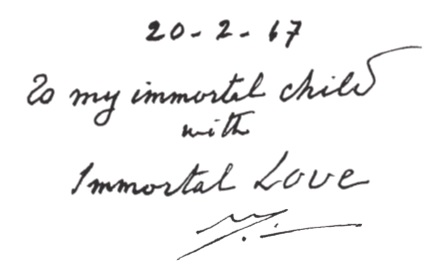 20-2-67
To my immortal child
with
Immortal Love